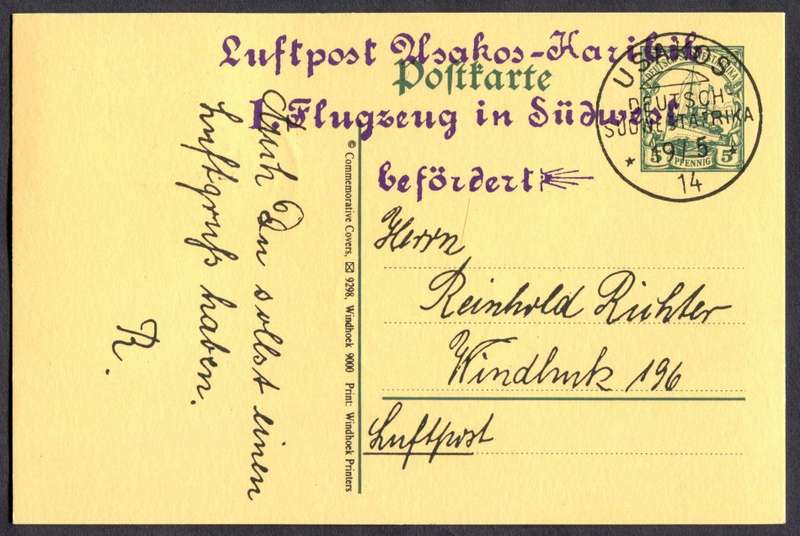 Luftpost Usakos-Karibib
Postkarte
I. Flugzeug in Südwest
befördert
USAKOS
DEUTSCH-
SÜDWESTAFRIKA
19/5
14
5 PFENNIG 5
Herrn
Reinhold Richter
Windhuk 196
Luftpost
Auch Du sollst einen
Luftgruß haben.
R.
© Commemorative Covers, ✉ 9298, Windhoek 9000 Print: Windhoek Printers